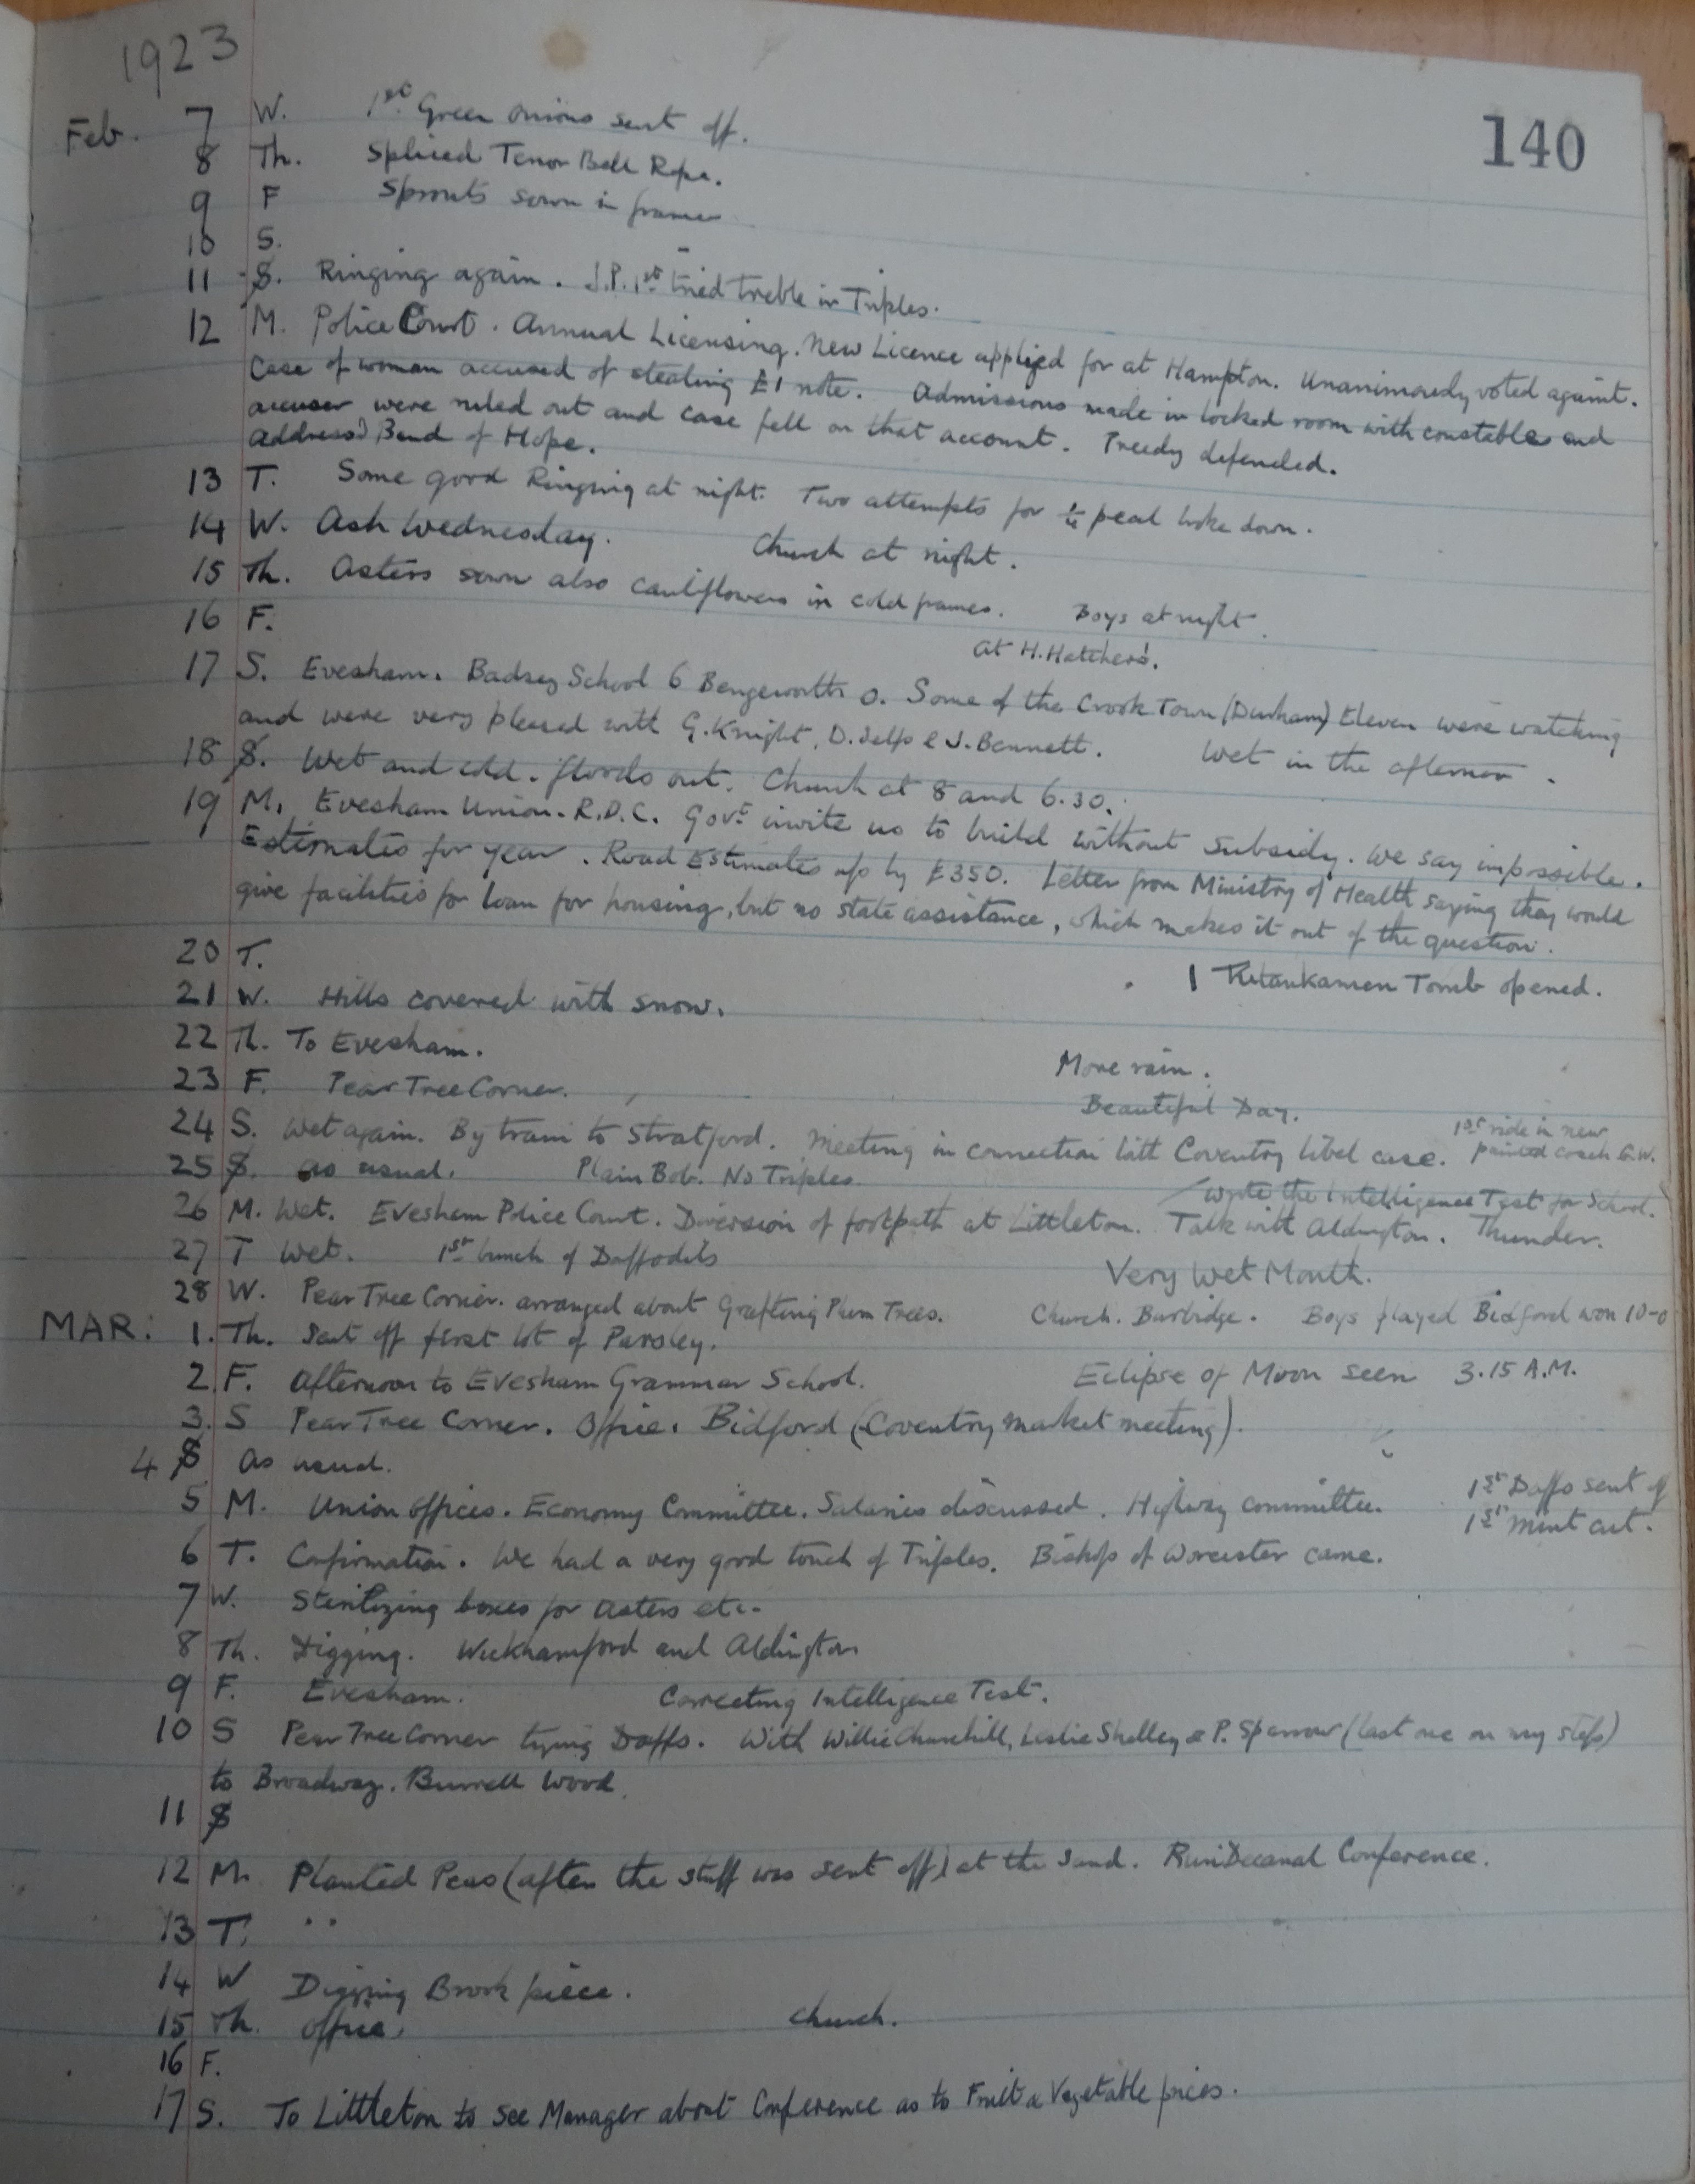 1923
140
Feb. 7 W. 1st Green onions sent off.
8 Th. Spliced Tenor Bell Rope.
9 F Sprouts sown in frame
10 S.
11 S. Ringing again. J.P. 1st tried treble in Triples.
12 M. Police Court. Annual Licensing. New Licence applied for at Hampton. Unanimously voted against.
Case of woman accused of stealing £1 note. Admissions made in locked room with constable and
accuser were ruled out and case fell on that account. Treedy defended.
Address'd Band of Hope.
13 T. Some good Ringing at night. Two attempts for ¼ peal broke down.
14 W. Ash Wednesday. Church at night.
15 Th. Asters sown also cauliflowers in cold frames. Boys at night
16 F. at H. Hatcher's.
17 S. Evesham. Badsey School 6 Bengeworth 0. Some of the Crook Town (Durham) Eleven were watching
and were very pleased with G. Knight, D. Jelfs & J. Bennett. Wet in the afternoon.
18 S. Wet and cold. floods out. Church at 8 and 6.30.
19 M. Evesham Union. R.D.C. Govt invite us to build without subsidy. We say impossible.
Estimates for year. Road Estimates up by £350. Letter from Ministry of Health saying they would
give facilities for loan for housing, but no state assistance, which makes it out of the question.
20 T. Tutankamen Tomb opened.
21 W. Hills covered with snow.
22 Th. To Evesham. More rain.
23 F. Pear Tree Corner. Beautiful Day.
24 S. Wet again. By train to Stratford. Meeting in connection with Coventry libel case. 1st ride in new
painted coach G.W.
25 S. As usual. Plain Bob. No Triples. Wrote the Intelligence Test for School.
26 M. Wet. Evesham Police Court. Diversion of footpath at Littleton. Talk with Aldington. Thunder.
27 T Wet. 1st bunch of Daffodils Very Wet Month.
28 W. Pear Tree Corner. arranged about Grafting Plum Trees. Church. Burbidge. Boys played Bidford won 10-0
MAR: 1. Th. Sent off first lot of Parsley.
2. F. Afternoon to Evesham Grammar School. Eclipse of Moon seen 3.15 A.M.
3. S Pear Tree Corner. Office. Bidford (Coventry market meeting).
4 S As usual.
5 M. Union offices. Economy Committee. Salaries discussed. Highway committee. 1st Daffs sent off
1st mint cut.
6 T. Confirmation. We had a very good touch of Triples. Bishop of Worcester came.
7 W. Sterilizing boxes for asters etc.
8 Th. Digging. Wickhamford and Aldington
9 F. Evesham. Correcting Intelligence Test.
10 S Pear Tree Corner tying Daffs. With Willie Churchill, Leslie Shelley & P. Sparrow (last one on my step)
to Broadway. Burrell Wood.
11 S
12 M. Planted Peas (after the stuff was sent off) at the Sand. RuriDecanal Conference.
13 T. " "
14 W Digging Brook piece.
15 Th. Office. Church.
16 F.
17 S. To Littleton to see Manager about Conference as to Fruit & Vegetable prices.